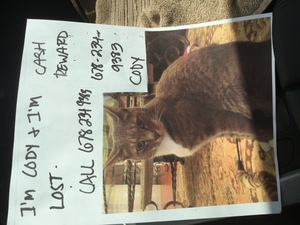 I'M CODY & I'M
LOST.
CALL 678 234 9383
CASH
REWARD
678-234-
9383
CODY